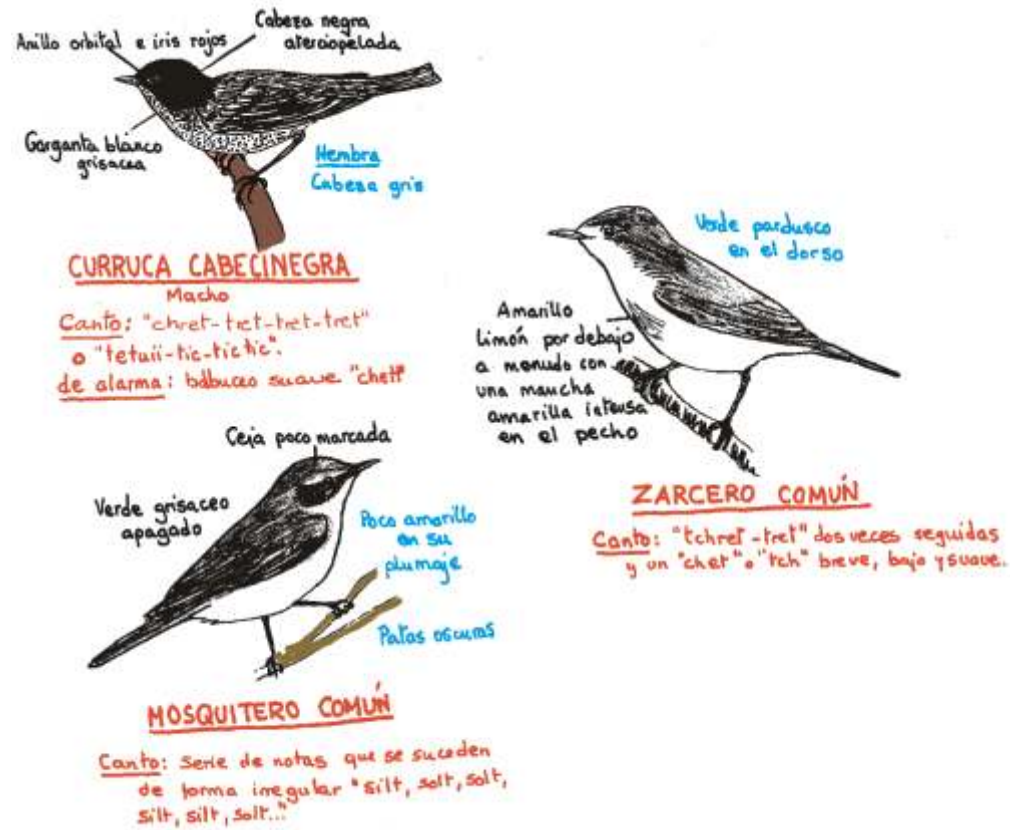 Anillo orbital e iris rojos
Cabeza negra
aterciopelada
Garganta blanco
grisacea
Hembra
Cabeza gris
CURRUCA CABECINEGRA
Macho
Canto: "chret-tret-tret-tret"
o "tetuii-tic-tictic".
de alarma: balbuceo suave "chett"
Verde pardusco
en el dorso
Amarillo
limón por debajo
a menudo con
una mancha
amarilla intensa
en el pecho
ZARCERO COMUN
Canto: "tchret-tret" dos veces seguidas
y un "chet" o "tch" breve, bajo y suave.
Ceja poco marcada
Verde grisaceo
apagado
Poco amarillo
en su
plumaje
Patas oscuras
MOSQUITERO COMÚN
Canto: Serie de notas que se suceden
de forma irregular "silt, solt, solt,
silt, silt, solt..."